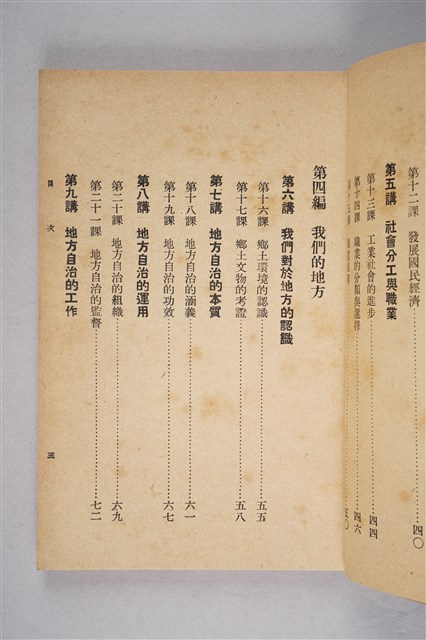 第十二課　發展國民經濟……四〇
第五講　社會分工與職業
第十三課　工業社會的進步……四四
第十四課　職業的分類與選擇……四六
五〇
第四編　我們的地方
第六講　我們對於地方的認識
第十六課　鄉土環境的認識……五五
第十七課　鄉土文物的考證……五八
第七講　地方自治的本質
第十八課　地方自治的涵義……六一
第十九課　地方自治的功效……六七
第八講　地方自治的運用
第二十課　地方自治的組織……六九
第二十一課　地方自治的監督……七二
第九講　地方自治的工作
目次
三